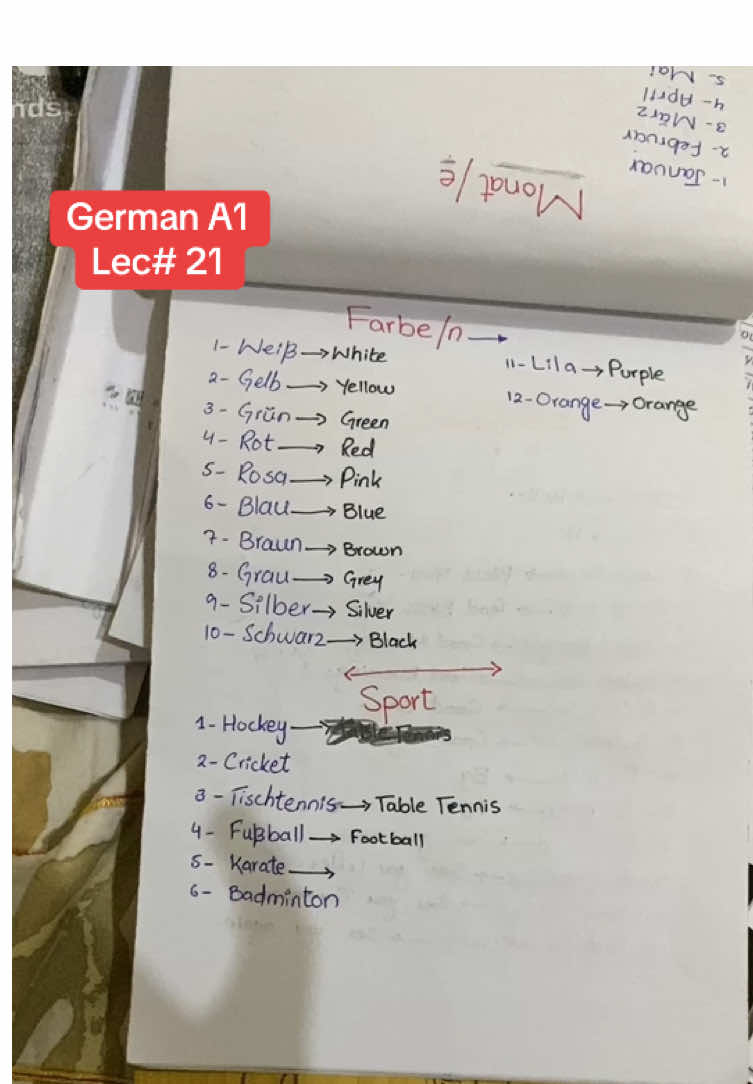 nds
5- Mai
4- April
3- März
2- Februar
1- Januar
Monat/e
German A1
Lec# 21
Farbe/n →
1- Weiß → White
2- Gelb → Yellow
3- Grün → Green
4- Rot → Red
5- Rosa → Pink
6- Blau → Blue
7- Braun → Brown
8- Grau → Grey
9- Silber → Silver
10- Schwarz → Black
11- Lila → Purple
12- Orange → Orange
Sport
1- Hockey →
2- Cricket
3- Tischtennis → Table Tennis
4- Fußball → Football
5- Karate →
6- Badminton